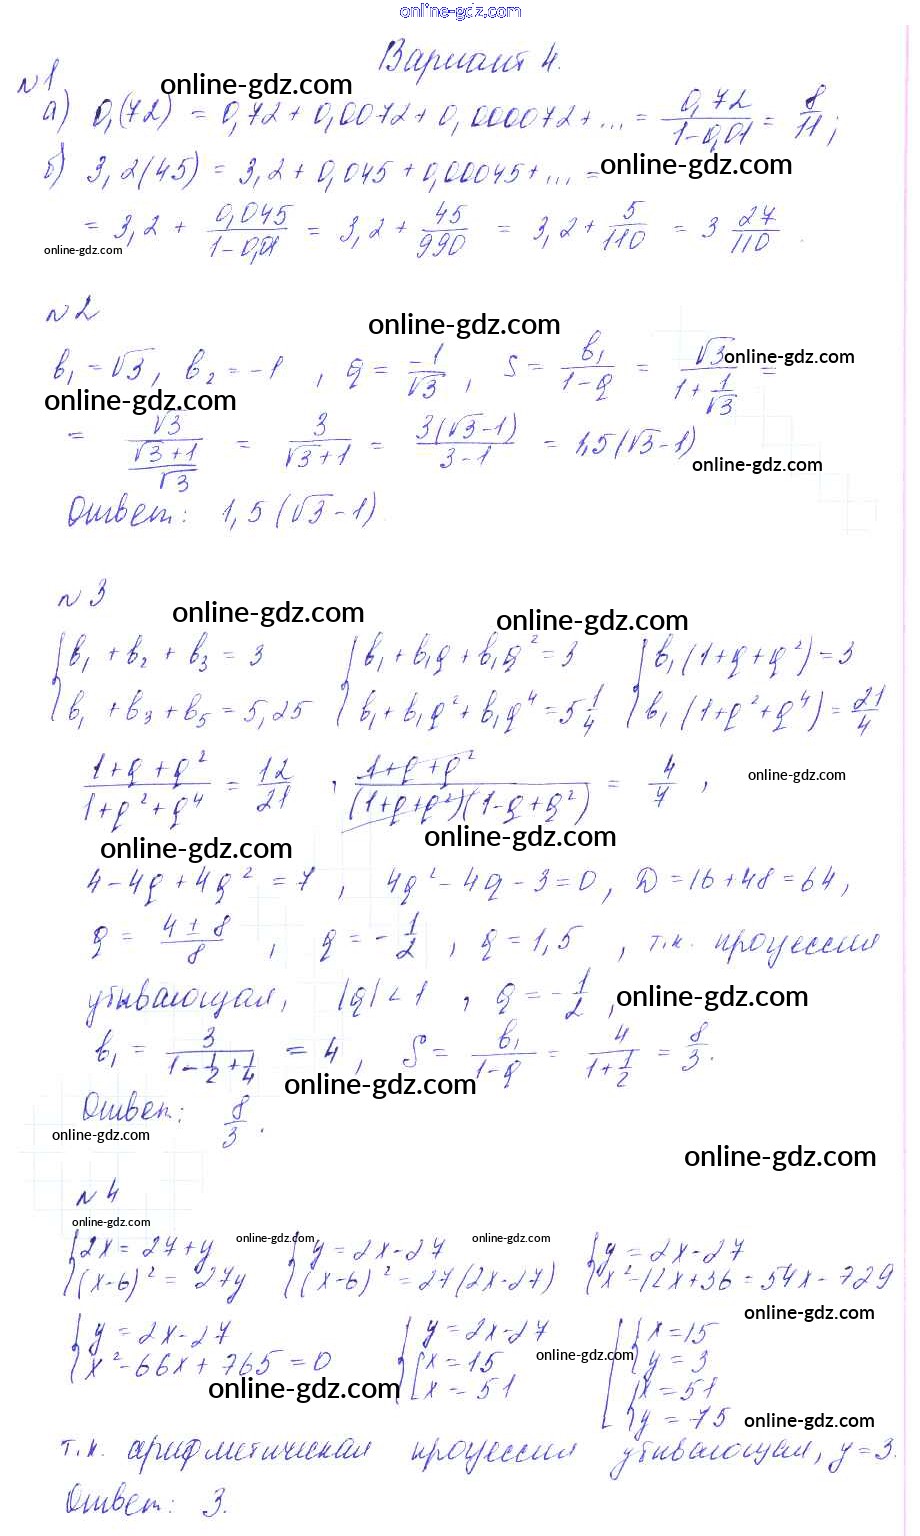 online-gdz.com
Вариант 4.
№1 online-gdz.com
а) 0,(72) = 0,72 + 0,0072 + 0,000072 + ... = 0,72/(1-0,01) = 8/11;
б) 3,2(45) = 3,2 + 0,045 + 0,00045 + ... = online-gdz.com
= 3,2 + 0,045/(1-0,01) = 3,2 + 45/990 = 3,2 + 5/110 = 3 27/110.
online-gdz.com
№2
online-gdz.com
b₁ = √3, b₂ = -1, q = -1/√3, S = b₁/(1-q) = √3/(1+1/√3) = online-gdz.com
online-gdz.com
= √3/((√3+1)/√3) = 3/(√3+1) = 3(√3-1)/(3-1) = 1,5(√3-1)
online-gdz.com
Ответ: 1,5(√3-1).
№3
online-gdz.com online-gdz.com
{b₁ + b₂ + b₃ = 3 {b₁ + b₁q + b₁q² = 3 {b₁(1+q+q²) = 3
{b₁ + b₃ + b₅ = 5,25 {b₁ + b₁q² + b₁q⁴ = 5 1/4 {b₁(1+q²+q⁴) = 21/4
(1+q+q²)/(1+q²+q⁴) = 12/21, (1+q+q²)/((1+q+q²)(1-q+q²)) = 4/7, online-gdz.com
online-gdz.com online-gdz.com
4-4q+4q² = 7, 4q²-4q-3=0, D=16+48=64,
q = (4±8)/8, q = -1/2, q = 1,5, т.к. прогрессия
убывающая, |q| < 1, q = -1/2, online-gdz.com
b₁ = 3/(1-1/2+1/4) = 4, S = b₁/(1-q) = 4/(1+1/2) = 8/3.
online-gdz.com
Ответ: 8/3.
online-gdz.com
online-gdz.com
№4
online-gdz.com online-gdz.com online-gdz.com
{2x = 27+y {y = 2x-27 {y = 2x-27
{(x-6)² = 27y {(x-6)² = 27(2x-27) {x²-12x+36 = 54x-729
online-gdz.com
{y = 2x-27 {y = 2x-27 [{x=15
{x²-66x+765=0 {[x=15 online-gdz.com {y=3
online-gdz.com [x=51 {x=51
{y=75 online-gdz.com
т.к. арифметическая прогрессия убывающая, y=3.
Ответ: 3.